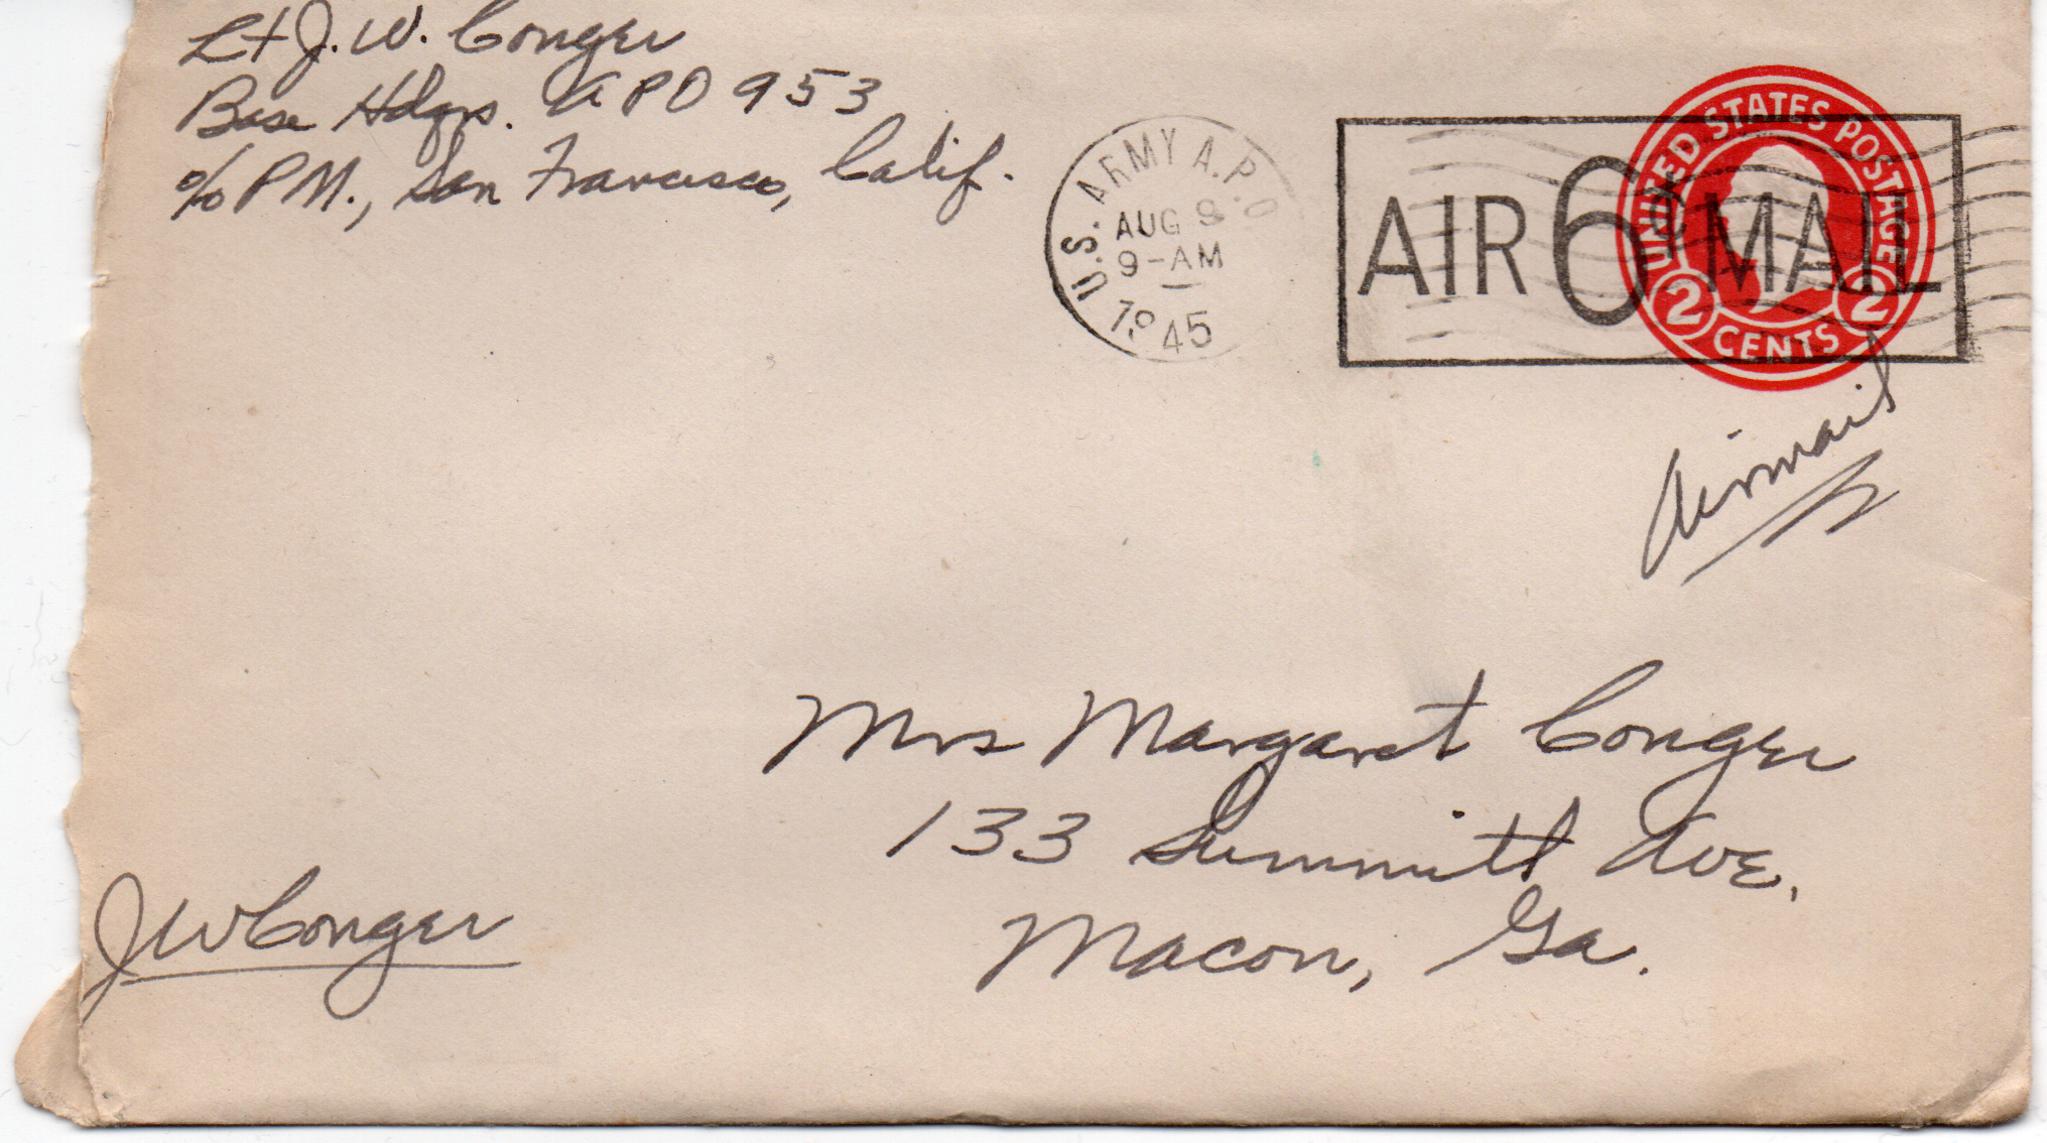 Lt J. W. Conger
Base Hdqrs. APO 953
c/o PM., San Francisco, Calif.
U.S. ARMY A.P.O
AUG 8
9-AM
1945
AIR 6¢ MAIL
UNITED STATES POSTAGE
2 CENTS 2
Airmail
Mrs Margaret Conger
133 Summitt Ave.
Macon, Ga.
JWConger